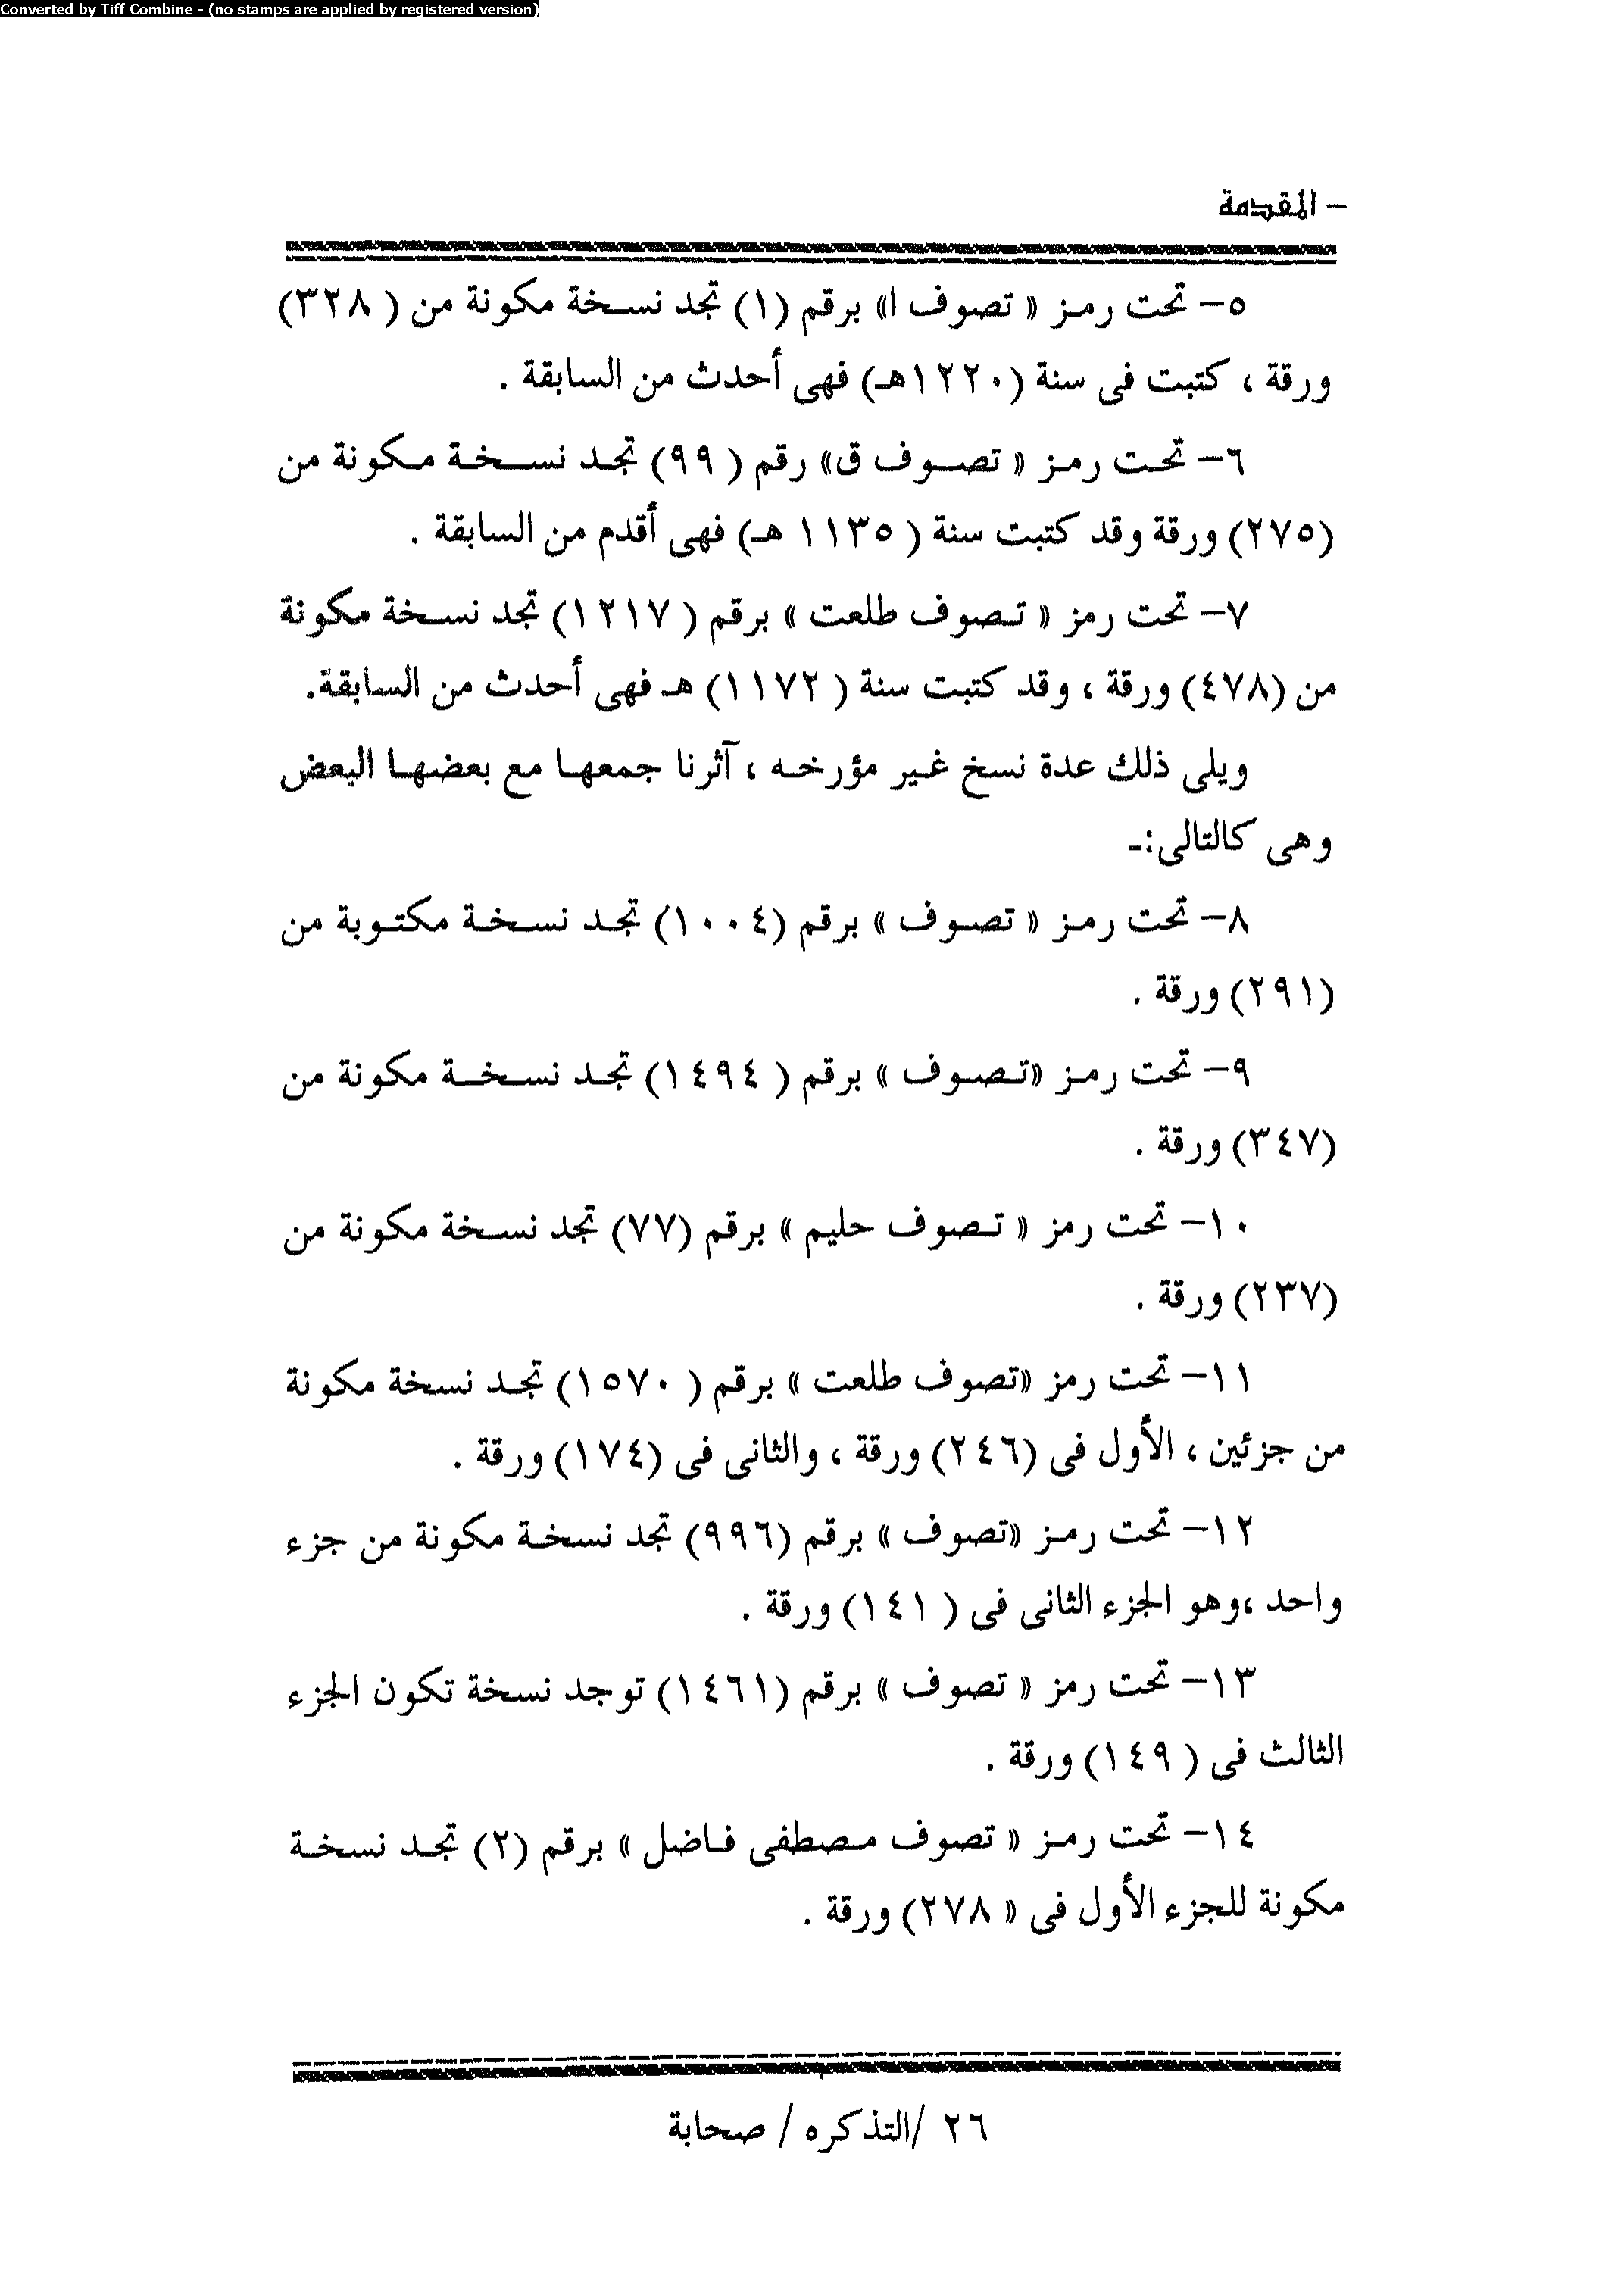 Converted by Tiff Combine - (no stamps are applied by registered version)
– المقدمة
٥– تحت رمز « تصوف ا» برقم (١) تجد نسخة مكونة من ( ٣٢٨)
ورقة ، كتبت فى سنة (١٢٢٠هـ) فهى أحدث من السابقة .
٦– تحت رمز « تصوف ق» رقم ( ٩٩) تجد نسخة مكونة من
(٢٧٥) ورقة وقد كتبت سنة ( ١١٣٥ هـ) فهى أقدم من السابقة .
٧– تحت رمز « تصوف طلعت » برقم ( ١٢١٧) تجد نسخة مكونة
من (٤٧٨) ورقة ، وقد كتبت سنة ( ١١٧٢) هـ فهى أحدث من السابقة.
ويلى ذلك عدة نسخ غير مؤرخه ، آثرنا جمعها مع بعضها البعض
وهى كالتالى:ـ
٨– تحت رمز « تصوف » برقم (١٠٠٤) تجد نسخة مكتوبة من
(٢٩١) ورقة .
٩– تحت رمز «تصوف » برقم ( ١٤٩٤) تجد نسخة مكونة من
(٣٤٧) ورقة .
١٠– تحت رمز « تصوف حليم » برقم (٧٧) تجد نسخة مكونة من
(٢٣٧) ورقة .
١١– تحت رمز «تصوف طلعت » برقم ( ١٥٧٠) تجد نسخة مكونة
من جزئين ، الأول فى (٢٤٦) ورقة ، والثانى فى (١٧٤) ورقة .
١٢– تحت رمز «تصوف » برقم (٩٩٦) تجد نسخة مكونة من جزء
واحد ،وهو الجزء الثانى فى ( ١٤١) ورقة .
١٣– تحت رمز « تصوف » برقم (١٤٦١) توجد نسخة تكون الجزء
الثالث فى ( ١٤٩) ورقة .
١٤– تحت رمز « تصوف مصطفى فاضل » برقم (٢) تجد نسخة
مكونة للجزء الأول فى « ٢٧٨) ورقة .
٢٦ /التذكره / صحابة